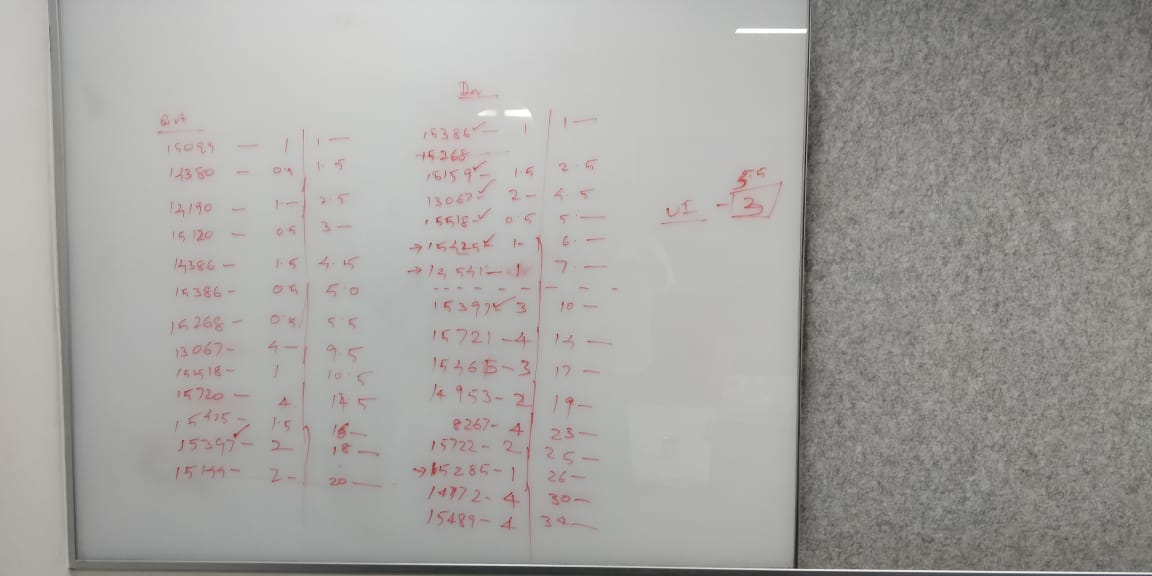 QA
15099 — 1 | 1 —
14380 — 0.5 | 1.5
14190 — 1 — | 2.5
15120 — 0.5 | 3 —
14386 — 1.5 | 4.5
15386 — 0.5 | 5.0
15268 — 0.5 | 5.5
13067 — 4 — | 9.5
15518 — 1 | 10.5
15720 — 4 | 14.5
15425 — 1.5 | 16 —
15397 ✓ — 2 | 18 —
15144 — 2 — | 20 —
Dev
15386 ✓ — 1 | 1 —
15268
15159 ✓ — 1.5 | 2.5
13067 ✓ 2 — | 4.5
15518 ✓ 0.5 | 5 —
→ 15425 ✓ 1 — | 6 —
→ 12541 — 1 | 7 —
15397 ✓ 3 | 10 —
15721 — 4 | 14 —
15465 — 3 | 17 —
14953 — 2 | 19 —
8267 — 4 | 23 —
15722 — 2 | 25 —
→ 15285 — 1 | 26 —
14772 — 4 | 30 —
15489 — 4 | 34 —
55
UI — 3